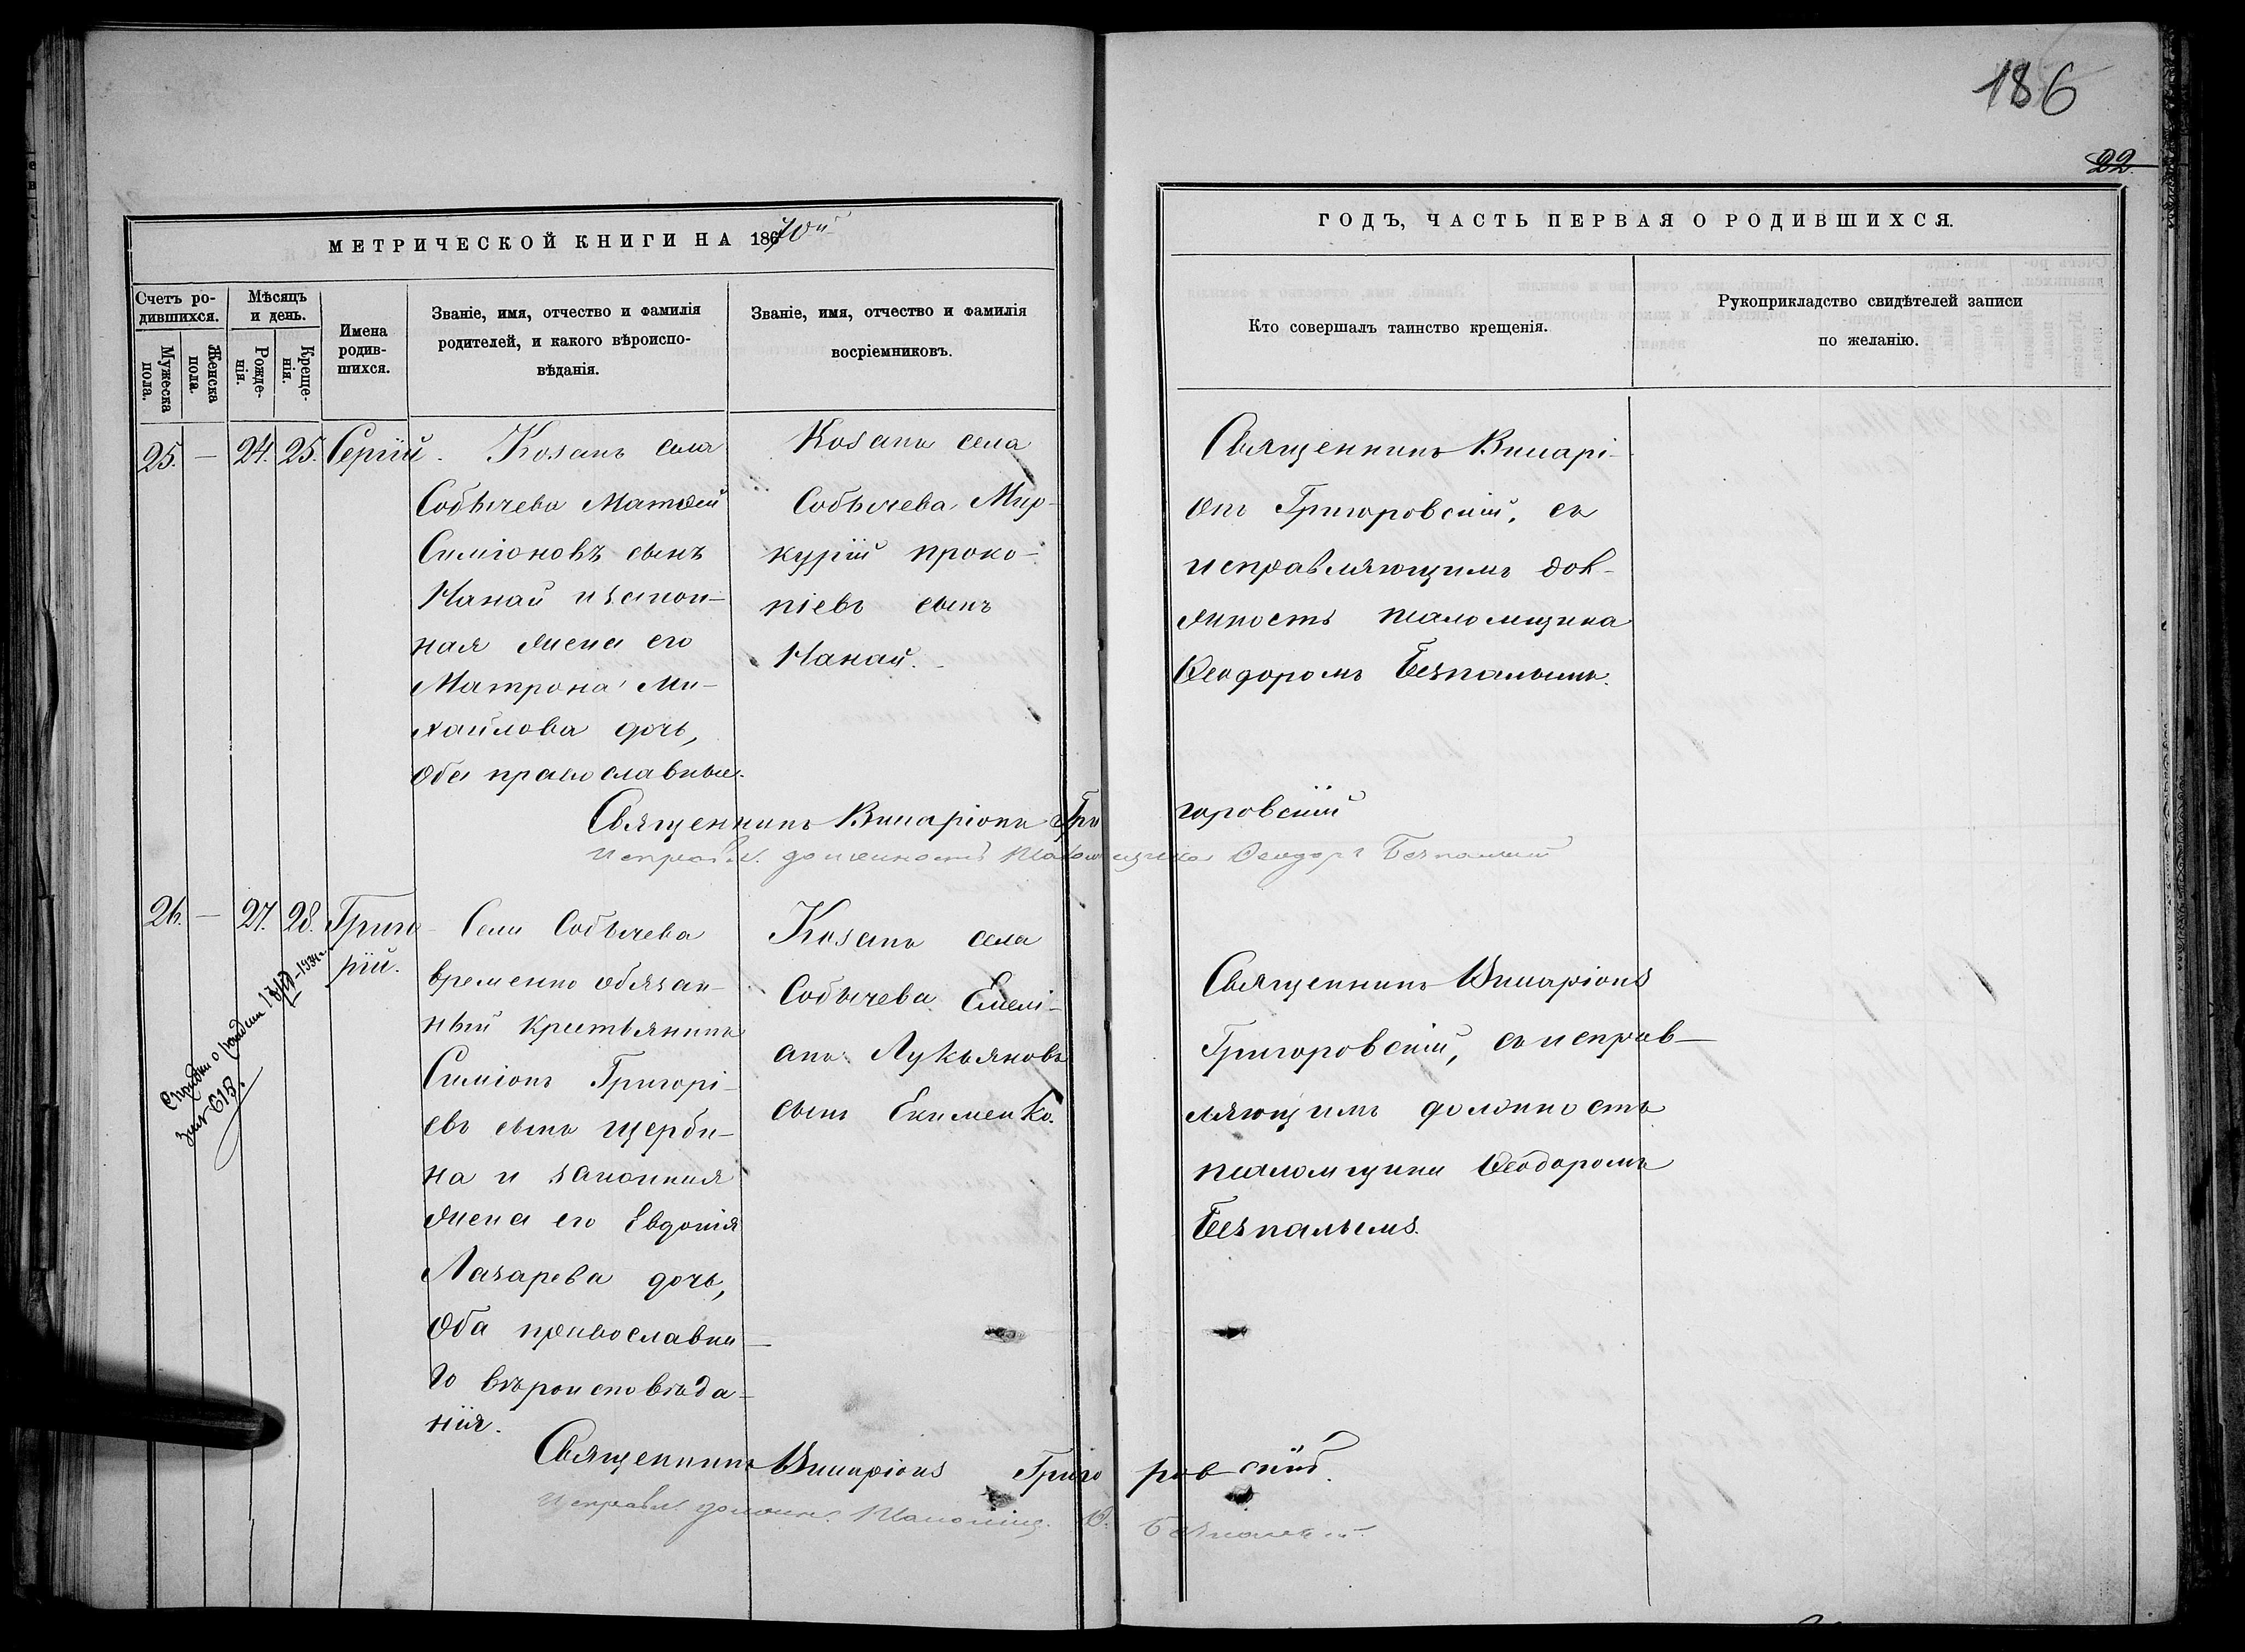 186
22.
МЕТРИЧЕСКОЙ КНИГИ НА 1870й
ГОДЪ, ЧАСТЬ ПЕРВАЯ О РОДИВШИХСЯ.
Счетъ ро-
дившихся.
Мужеска
пола.
Женска
пола.
Мѣсяцъ
и день.
Рожде-
нія.
Креще-
нія.
Имена
родив-
шихся.
Званіе, имя, отчество и фамилія
родителей, и какого вѣроиспо-
вѣданія.
Званіе, имя, отчество и фамилія
воспріемниковъ.
Кто совершалъ таинство крещенія.
Рукоприкладство свидѣтелей записи
по желанію.
25. — 24. 25. Сергій.
Козакъ села
Собычева Матѳей
Симіоновъ сынъ
Манай и закон-
ная жена его
Матрона Ми-
хайлова дочь,
Оба православные.
Козакъ села
Собычева Мир-
курій Проко-
піевъ сынъ
Манай.
Священникъ Виларі-
онъ Григоровскій, съ
исправляющимъ дол-
жность псаломщика
Ѳеодоромъ Безпалымъ.
Священникъ Виларіонъ Григоровскій
Исправл. должность псаломщика Ѳеодоръ Безпалый
26. — 27. 28. Григо-
рій.
Села Собычева
временно обязан-
ный крестьянинъ
Симіонъ Григорі-
евъ сынъ Щерби-
на и законная
жена его Евдокія
Лазарева дочь,
Оба православна-
го вѣроисповѣда-
нія.
Козакъ села
Собычева Емелі-
анъ Лукьяновъ
сынъ Екименко.
Священникъ Виларіонъ
Григоровскій, съ исправ-
ляющимъ должность
псаломщика Ѳеодоромъ
Безпалымъ.
Священникъ Виларіонъ Григоровскій.
Исправл. должн. Псаломщ. Ѳ. Безпалый.